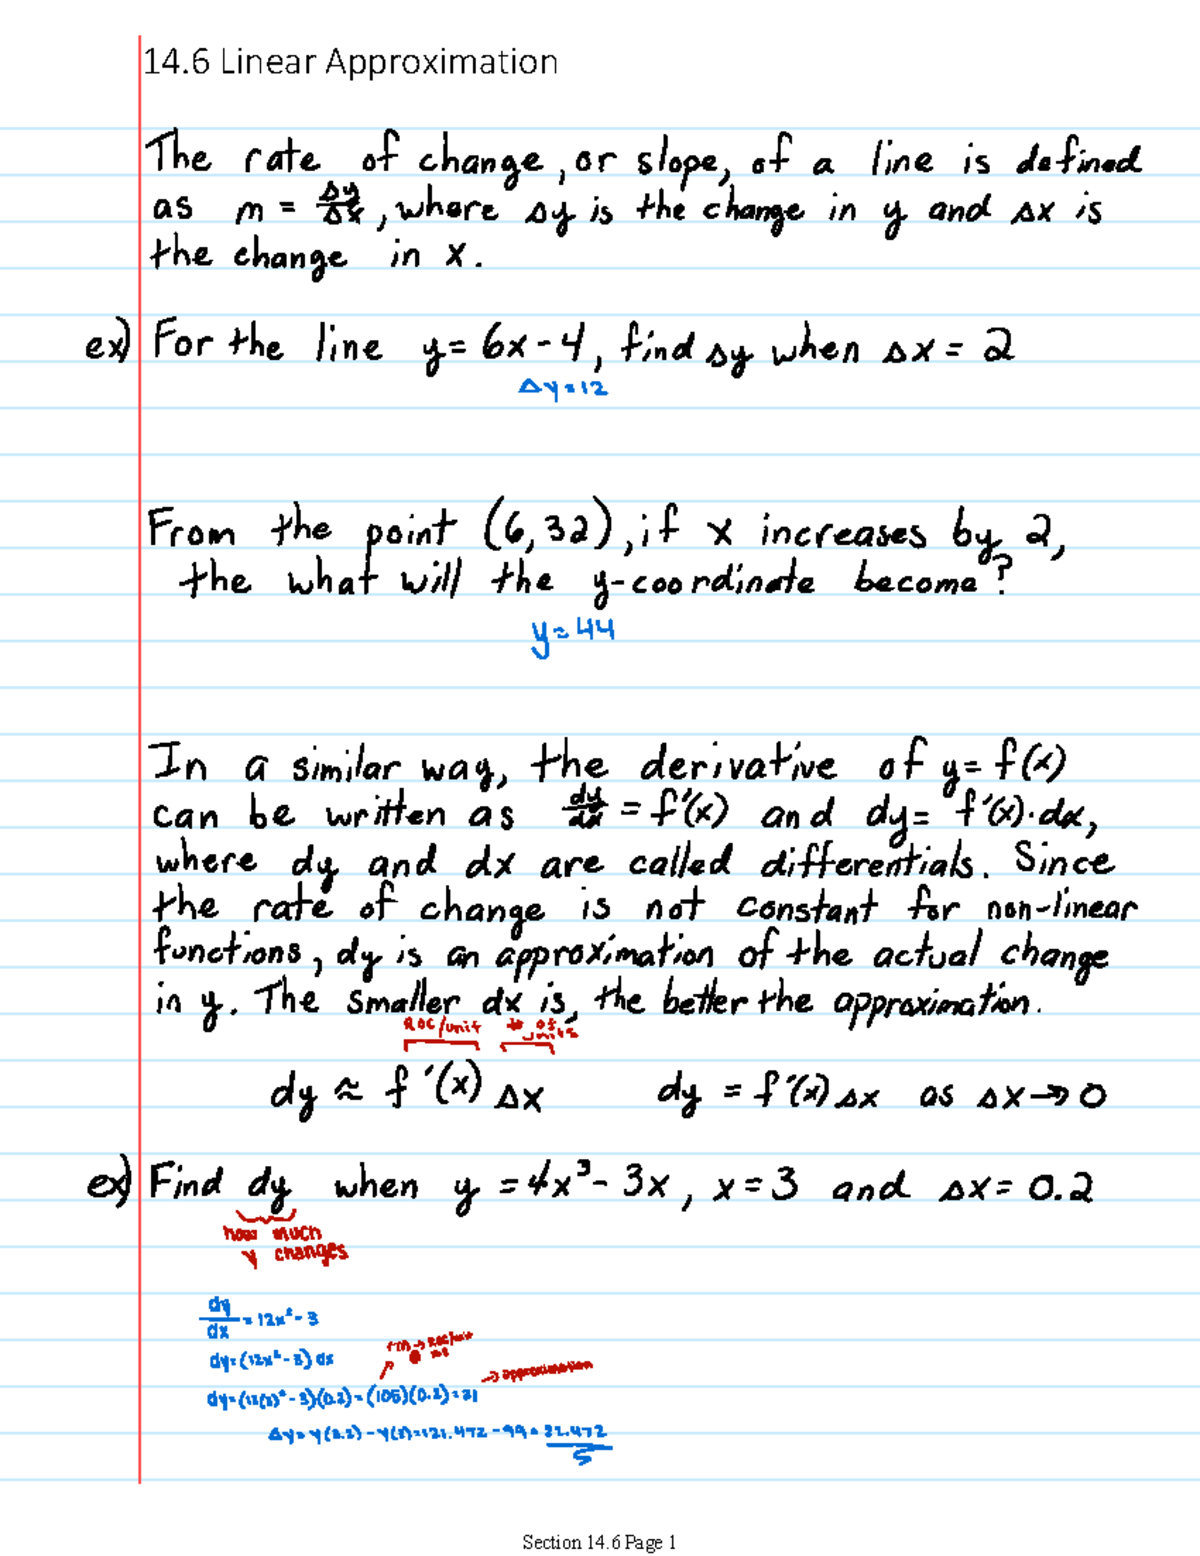 14.6 Linear Approximation
The rate of change, or slope, of a line is defined
as m = Δy/Δx, where Δy is the change in y and Δx is
the change in x.
ex) For the line y = 6x - 4, find Δy when Δx = 2
Δy = 12
From the point (6,32), if x increases by 2,
the what will the y-coordinate become?
y = 44
In a similar way, the derivative of y = f(x)
can be written as dy/dx = f'(x) and dy = f'(x)·dx,
where dy and dx are called differentials. Since
the rate of change is not constant for non-linear
functions, dy is an approximation of the actual change
in y. The smaller dx is, the better the approximation.
ROC/unit # of units
dy ≈ f'(x) Δx dy = f'(x) Δx as Δx → 0
ex) Find dy when y = 4x³ - 3x, x = 3 and Δx = 0.2
how much
y changes
dy/dx = 12x² - 3
dy = (12x² - 3) dx
→ approximation
dy = (12(3)² - 3)(0.2) = (105)(0.2) = 21
Δy = y(3.2) - y(3) = 121.472 - 99 = 22.472
Section 14.6 Page 1